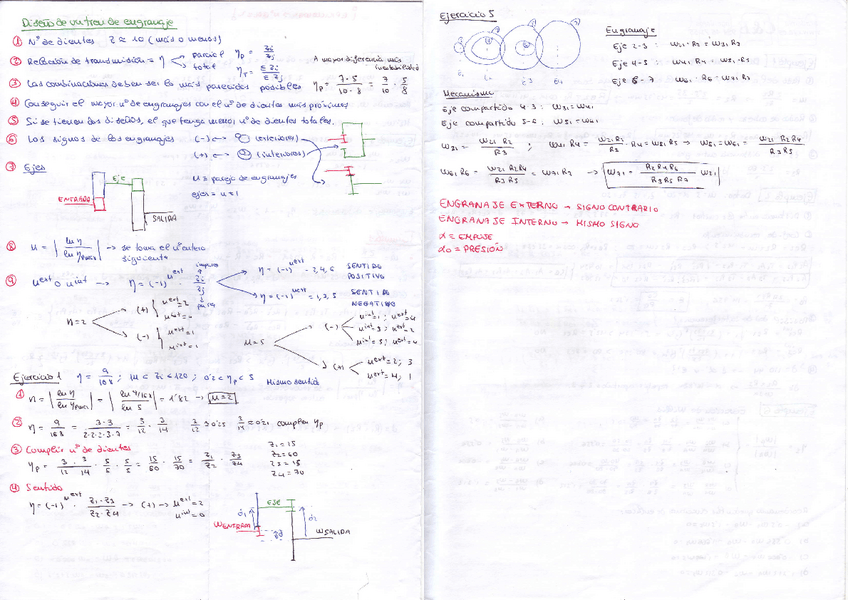 Diseño de un tren de engranaje
① Nº de dientes Z ≥ 10 (más o menos)
② Relación de transmisión = η parcial ηp = Zi / Zj
total ηT = ΣZi / ΣZj
A mayor diferencia más
③ Las combinaciones deben ser lo más parecidas posibles ηp = 7·5 / 10·8 = 7/10 · 5/8
④ Conseguir el mejor nº de engranajes con el nº de dientes más próximos
⑤ Si se tienen dos diseños, el que tenga menor nº dientes totales.
⑥ Los signos de los engranajes (-) → (exteriores)
(+) → (interiores)
⑦ Ejes
EJE
ENTRADA
SALIDA
u = pareja de engranajes
ejes = u - 1
⑧ u = | ln η / ln ηpmax | → se toma el nº entero
siguiente
⑨ u ext o u int → η = (-1)^u ext · Zi / Zj
impares
pares
η = (-1)^u ext - 2, 4, 6 SENTIDO
POSITIVO
η = (-1)^u ext = 1, 3, 5 SENTIDO
NEGATIVO
u = 2
(+) u ext = 2
u int = 0
(-) u ext = 1
u int = 1
u = 5
(-)
(+)
Ejercicio 1 η = 9/168 ; 14 < Zi < 120 ; 0'2 < ηp < 5 Mismo sentido
① u = | ln η / ln ηpmax | = | ln 9/168 / ln 5 | = 1'82 → u = 2
② η = 9/168 = 3·3 / 2·2·2·3·7 = 3/12 · 3/14 3/12 = 0'25 3/14 = 0'21 cumplen ηp
③ Cumplir nº de dientes
ηp = 3/12 · 3/14 · 5/5 · 5/5 = 15/60 · 15/70 = Z1/Z2 · Z3/Z4
Z1 = 15
Z2 = 60
Z3 = 15
Z4 = 70
④ Sentido
η = (-1)^u ext · Z1·Z3 / Z2·Z4 → (+) → u ext = 2
u int = 0
EJE
WENTRADA
WSALIDA
Ejercicio 5
Engranaje
Eje 2-3 : W21 · R2 = W31 · R3
Eje 4-5 : W41 · R4 = W51 · R5
Eje 6-7 W61 · R6 = W71 · R7
Mecanismo
Eje compartido 4-3 : W31 = W41
Eje compartido 5-6 : W51 = W61
W31 = W21 R2 / R3 ; W41 R4 = W21 R2 / R3 · R4 = W51 R5 → W51 = W61 = W21 R2 R4 / R3 R5
W61 R6 = W21 R2 R4 / R3 R5 = W71 R7 → W71 = R2 R4 R6 / R3 R5 R7 W21
ENGRANAJE EXTERNO → SIGNO CONTRARIO
ENGRANAJE INTERNO → MISMO SIGNO
α = EMPUJE
α0 = PRESIÓN